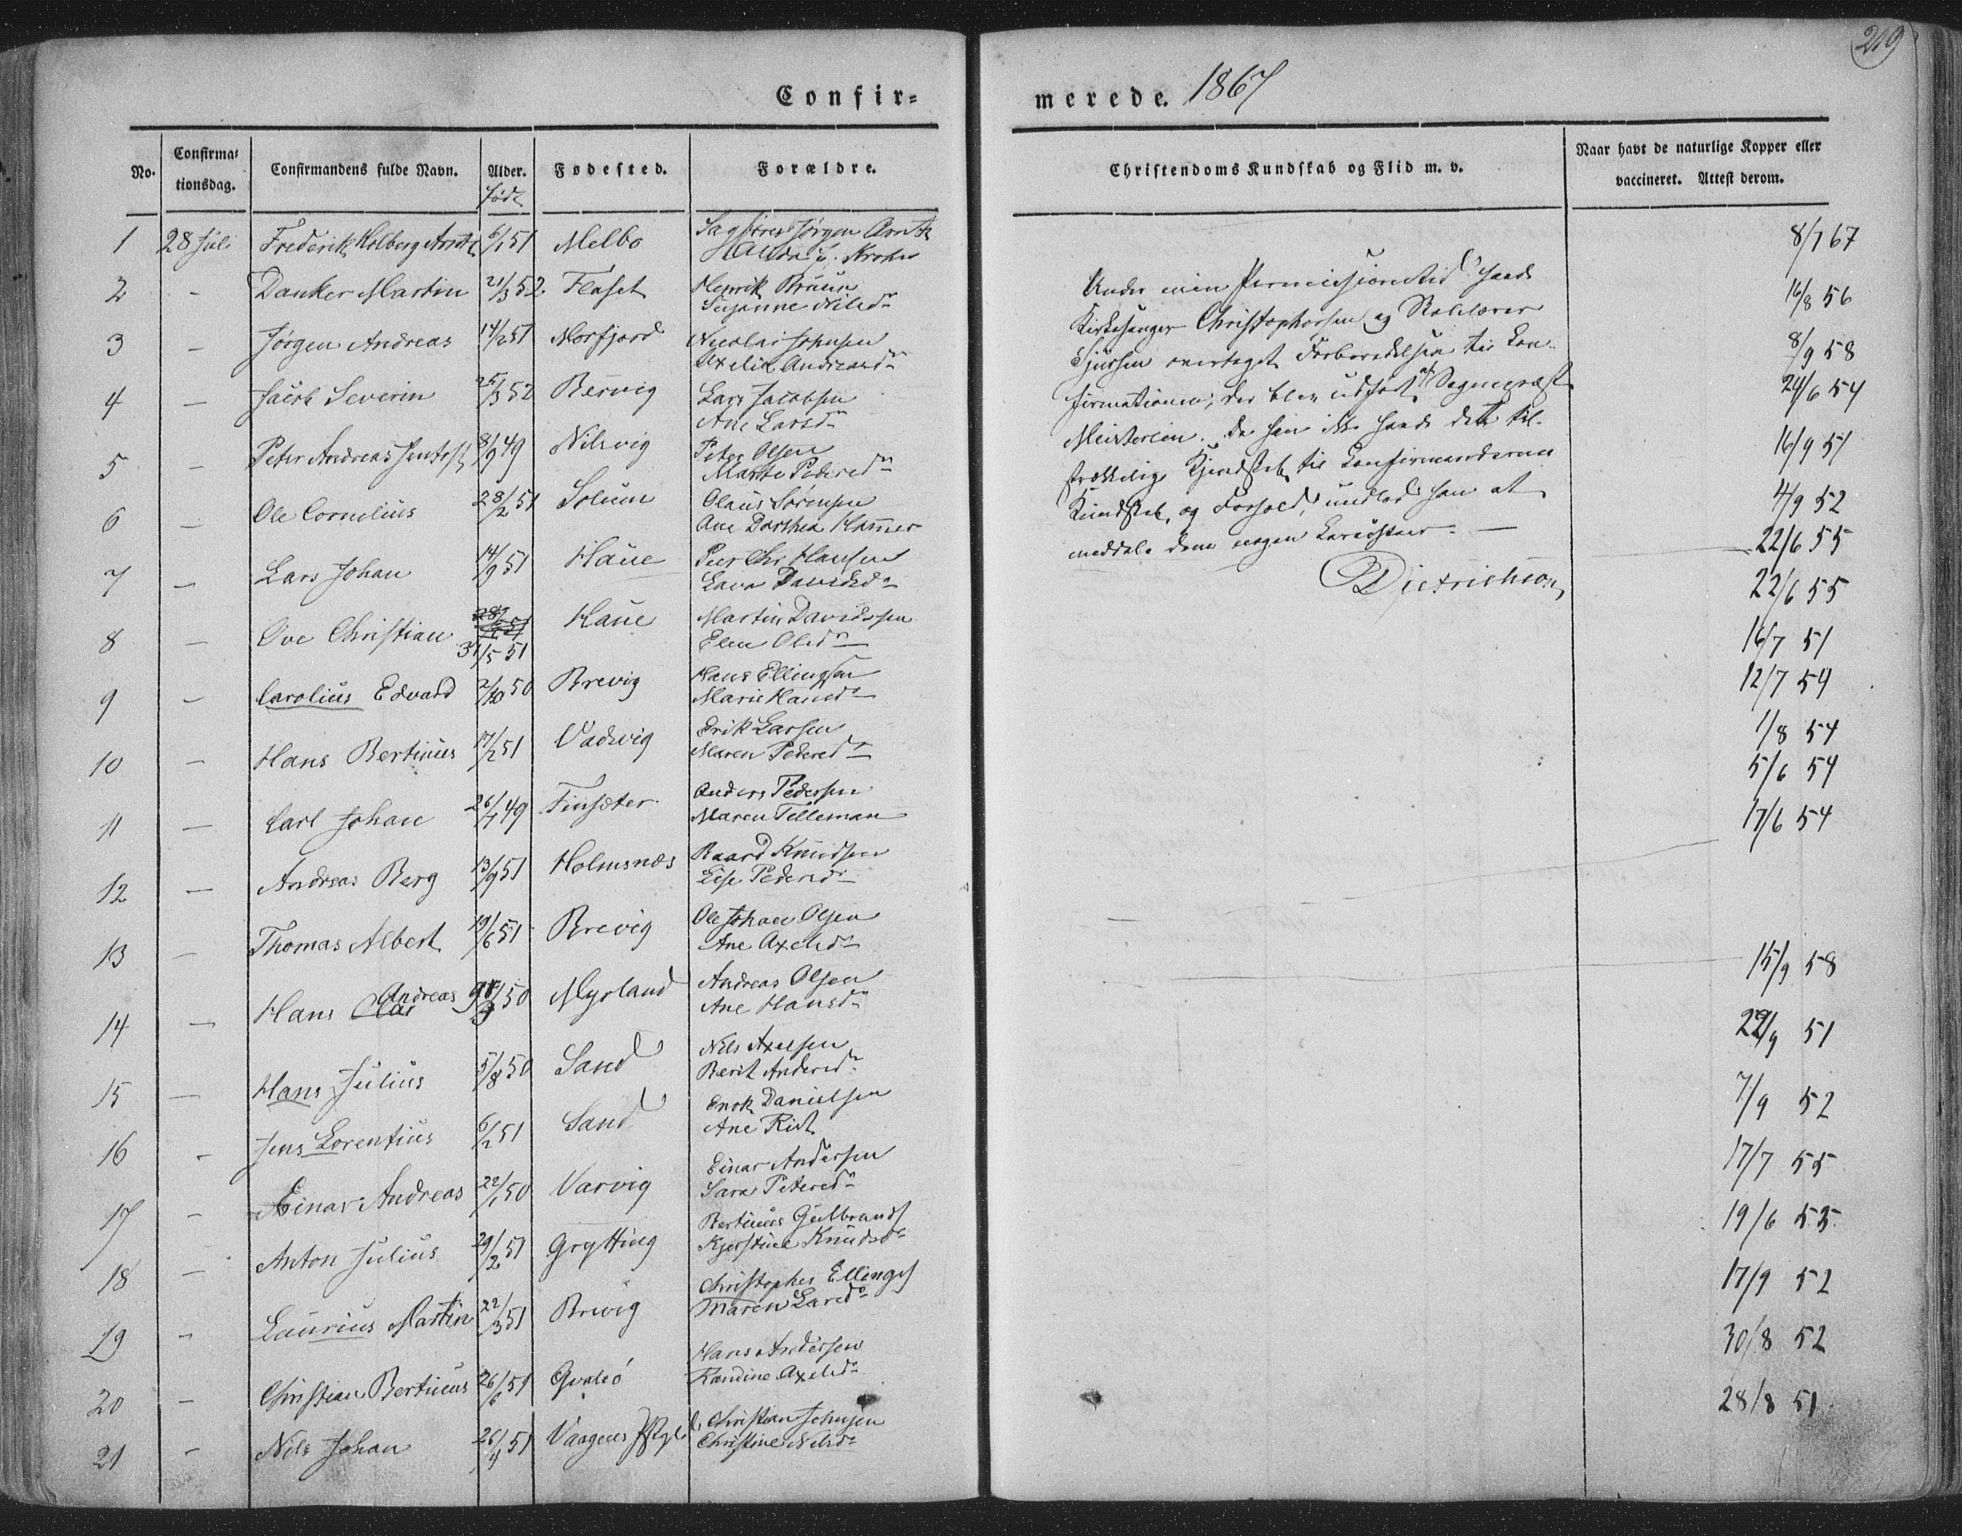 209
Confir=
merede. 1867
No.
Confirma=
tionsdag.
Confirmandens fulde Navn.
Alder.
född
Fødested.
Forældre.
Christendoms Kundskab og Flid m. v.
Naar havt de naturlige Kopper eller
vaccineret. Attest derom.
1 28 Juli Frederik Kolberg Arntz 6/1 51 Melbo Sagfører Jørgen Arntz 8/7 67
2 - Danker Martin 21/3 52 Flaset Henrik Bruun 16/8 56
Susanne Nilsdr
3 - Jørgen Andreas 14/2 51 Morfjord Nicolai Johnsen 8/9 58
Axelia Andreasdr
4 - Jacob Severin 25/3 52 Bervig Lars Jacobsen 24/6 54
Ane Larsdr
5 - Peter Andreas 8/9 49 Nilsvig Peter Olsen 16/9 51
Marthe Pedersdr
6 - Ole Cornelius 28/2 51 Solum Olaus Sørensen 4/9 52
Ane Dorthea Hammer
7 - Lars Johan 14/9 51 Haue Peer Chr Hansen 22/6 55
Davidsdr
8 - Ove Christian 31/5 51 Haue Martin Davidssen 22/6 55
Elen Olsdr
9 - Carolius Edvard 2/10 50 Brevig Hans Ellingsen 16/7 51
Marie Hansdr
12/7 54
10 - Hans Bertinus 17/2 51 Vadvig Erik Larsen 1/8 54
Maren Pedersdr
5/6 54
11 - Carl Johan 26/7 49 Finsæter Anders Pedersen 17/6 54
Maren Tilleman
12 - Andreas Berg 13/9 51 Holmsnæs Baard Knudsen
Lise Pedersdr
13 - Thomas Albert 19/6 51 Brevig Ole Johan Olsen
Ane Axelsdr 15/9 58
14 - Hans Andreas 50 Myrland Andreas Olsen
Ane Hansdr 22/9 51
15 - Hans Julius 5/8 50 Sand Nils Axelsen
Berit Andersdr 7/9 52
16 - Jens Lorentius 6/2 51 Sand Enok Danielsen
Ane Rist 17/7 55
17 - Einar Andreas 22/1 50 Varvig Einar Andersen
Sara Petersdr 19/6 55
18 - Anton Julius 29/2 51 Grytting Bertinus Gulbrands
Kjerstine Knudsdr 17/9 52
19 - Laurius Martin 22/3 51 Brevig Christopher Ellings
Maren Larsdr 30/8 52
20 - Christian Bertinus 26/6 51 Gvalsø Hans Andersen
Randine Axelsdr 28/8 51
21 - Nils Johan 26/4 51 Vaagens Christian Johnsen
Christine Nilsdr
Under min Permissionstid havde
Kirkesanger Christophersen og Skolelærer
Sjursen overtaget Forberedelsen til Con-
firmationen; der blev udført af Sognepræst
Meisterlin. Da han ikke havde det til-
strækkelig Kjendskab til Confirmandernes
Kundskab, og Forhold, undlod han at
meddele dem nogen Karakter. —
Dietrichson